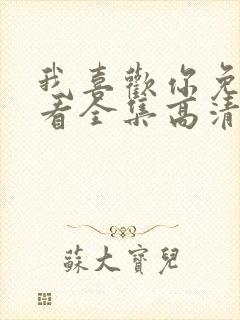 我喜歡你免
看全集高清
蘇大寶兒